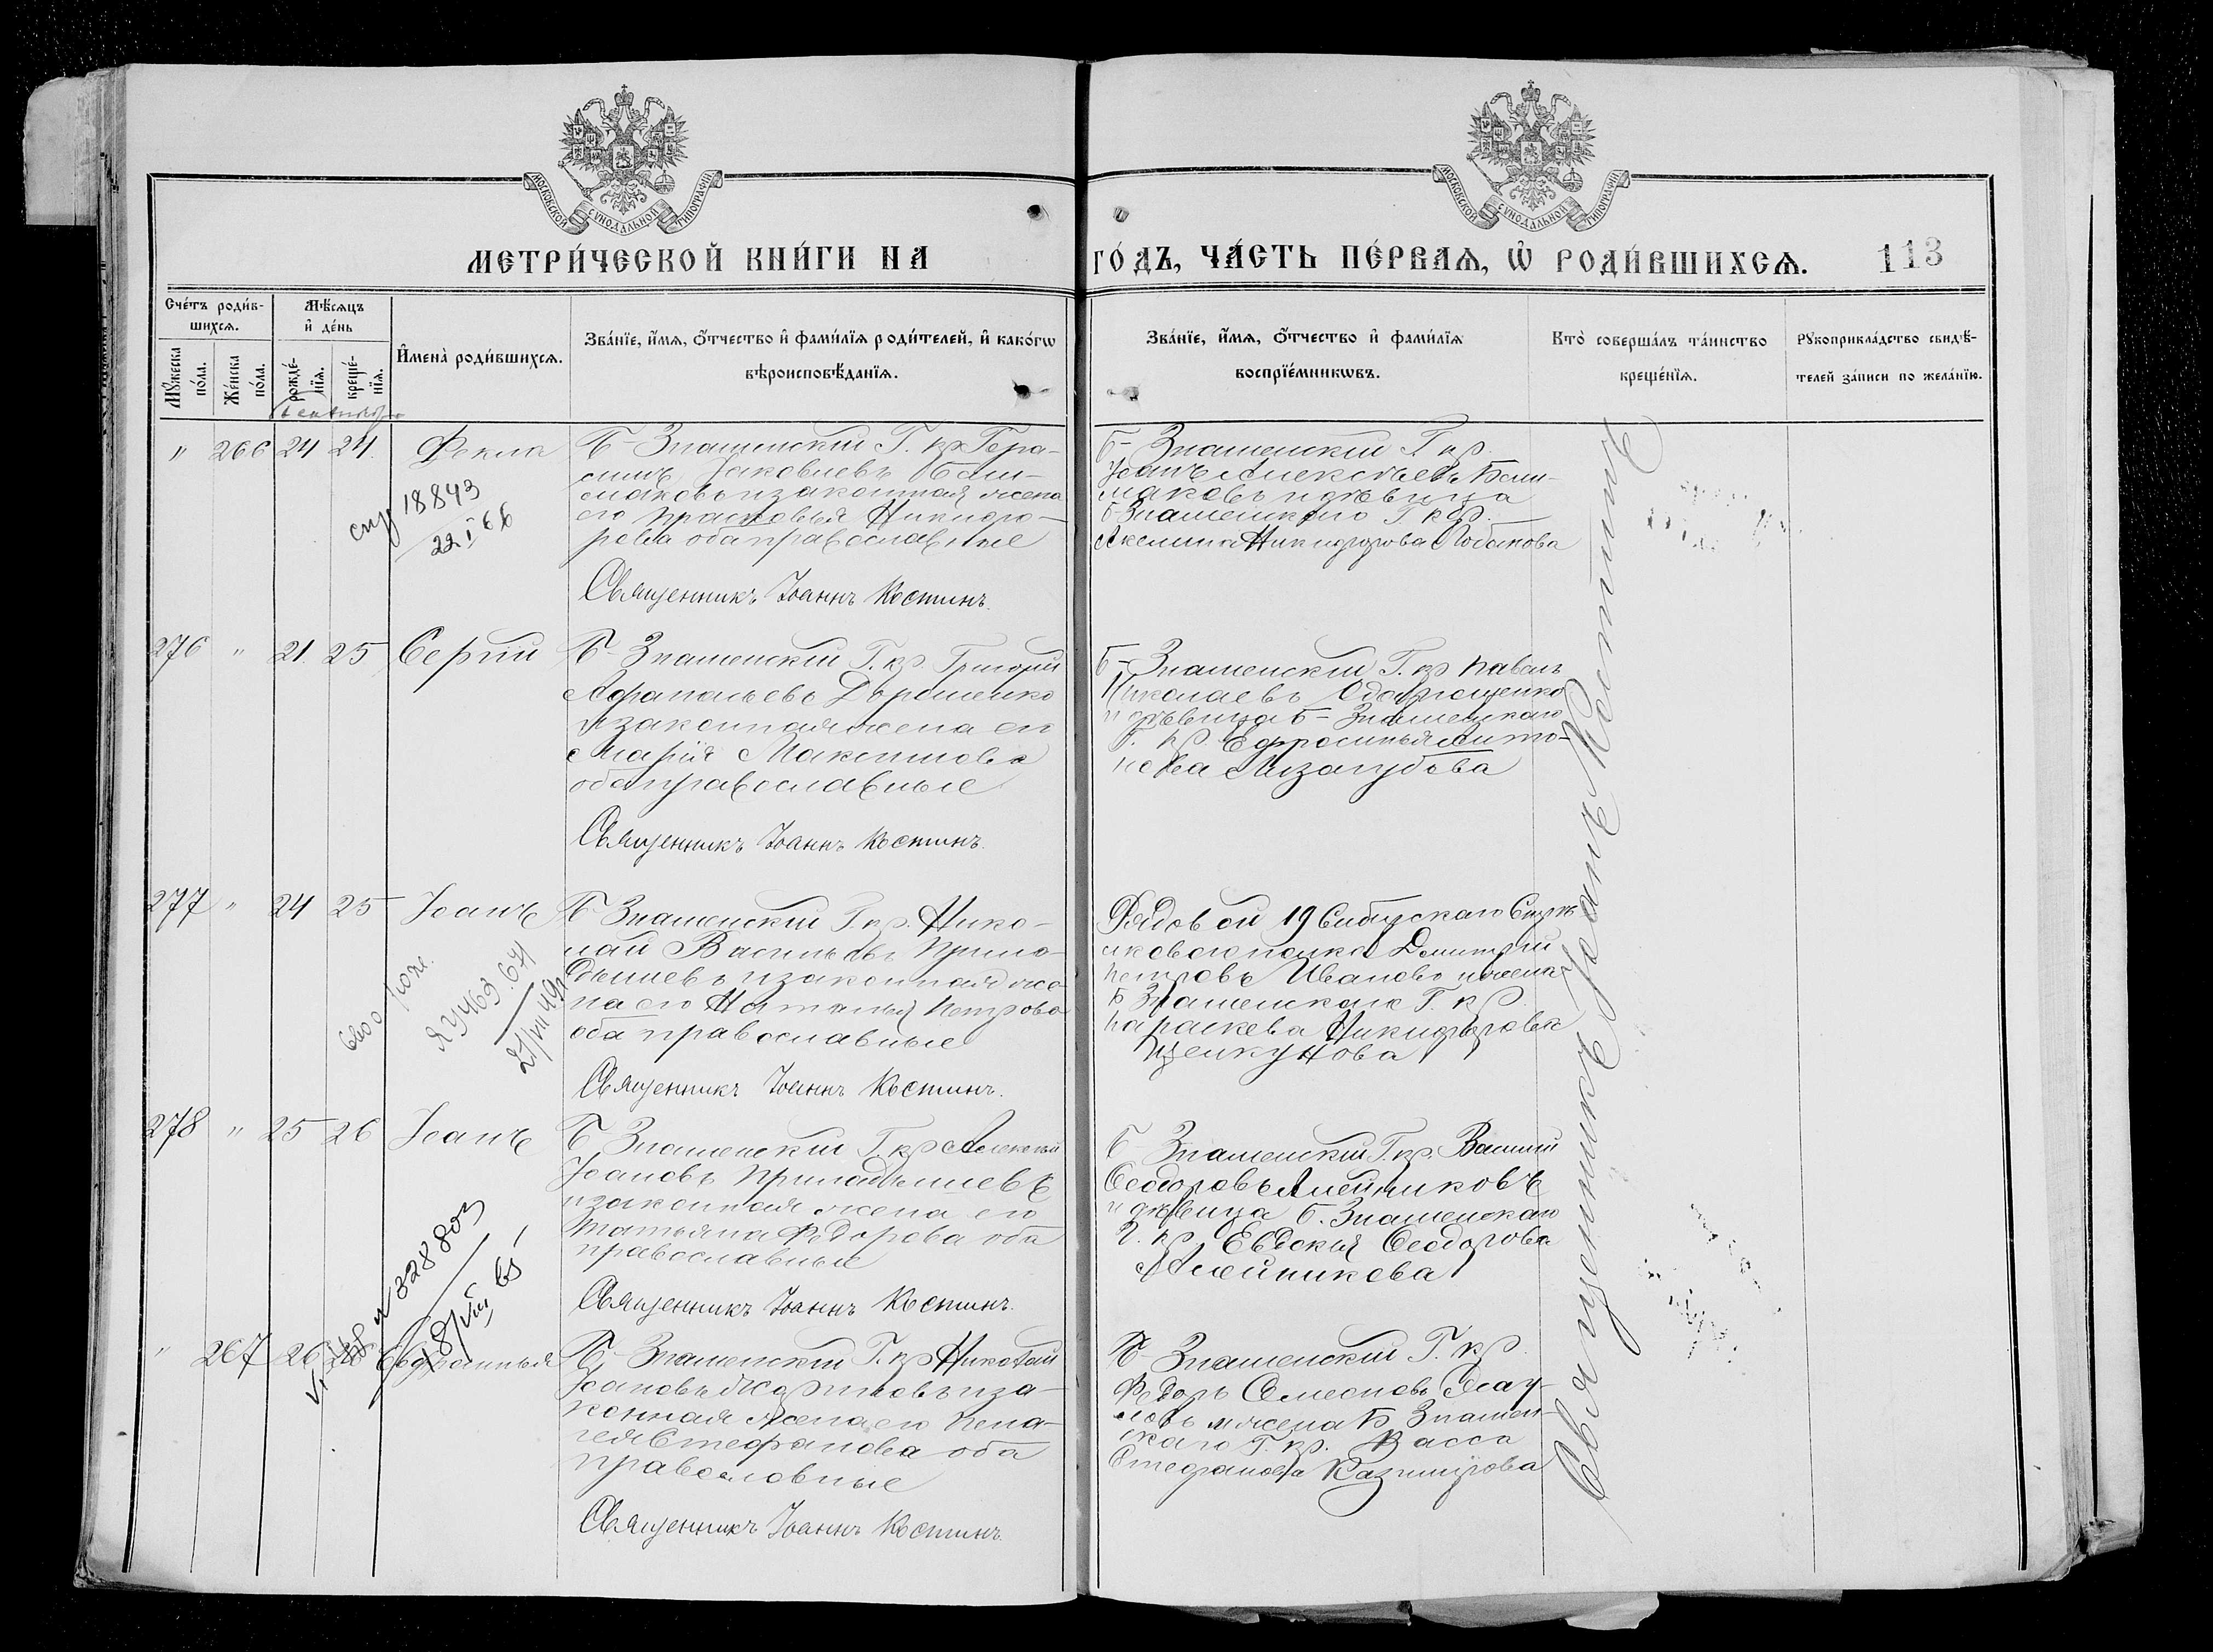 МОСКОВСКОЙ СѴНОДАЛЬНОЙ ТИПОГРАФІИ
МОСКОВСКОЙ СѴНОДАЛЬНОЙ ТИПОГРАФІИ
МЕТРИ́ЧЕСКОЙ КНИ́ГИ НА ГО́ДЪ, ЧА́СТЬ ПЕ́РВАѦ, Ѡ҆ РОДИ́ВШИХСѦ. 113
Сче́тъ роди́в-
шихсѧ.
Мꙋ́жеска по́ла.
Же́нска по́ла.
Мѣ́сѧцъ
и҆ де́нь
рожде́-нїѧ.
креще́-нїѧ.
И҆мена̀ роди́вшихсѧ.
Зва́нїе, и҆́мѧ, ѻ҆́тчество и҆ фами́лїѧ роди́телей, и҆ како́гѡ
вѣроисповѣ́данїѧ.
Зва́нїе, и҆́мѧ, ѻ҆́тчество и҆ фами́лїѧ
воспрїе́мникѡвъ.
Кто̀ соверша́лъ та́инство
креще́нїѧ.
Рꙋкоприкла́дство свидѣ́-
телей за́писи по жела́нїю.
Сентябрь
" 266 24 24. Фекла
18843
22 I 66
Б-Знаменскій Г. кр. Гера-
симъ Іаковлевъ Баш-
маковъ и законная жена
его Прасковья Никифо-
рова оба православные
Священникъ Іоаннъ Костинъ.
Б-Знаменскій Г кр.
Іоаннъ Алексѣевъ Баш-
маковъ и дѣвица
Б-Знаменскаго Г кр.
Акелина Никифорова Лобанова
276 " 21. 25 Сергій
Б-Знаменскій Г. кр. Григорій
Афанасьевъ Дорошенко
и законная жена его
Марія Максимова
оба православные
Священникъ Іоаннъ Костинъ.
Б-Знаменскій Г. кр. Павелъ
Николаевъ
и дѣвица Б-Знаменскаго
Г. кр. Ефросинья Анто-
нова
277 " 24 25 Іоаннъ
Б-Знаменскій Г. кр. Нико-
лай Васильевъ
и законная же-
на его Наталья Петрова
оба православные
Священникъ Іоаннъ Костинъ.
Рядовой 19 Сибирскаго Стрѣл-
коваго полка Димитрій
Петровъ Ивановъ и жена
Б Знаменскаго Г. кр.
Параскева Никифорова
278 " 25 26 Іоаннъ
328803
Б Знаменскій Г. кр. Алексѣй
Іоановъ
и законная жена его
Татьяна Федорова оба
православные
Священникъ Іоаннъ Костинъ.
Б Знаменскій Г. кр. Василій
Феодоровъ Алейниковъ
и дѣвица Б. Знаменскаго
Г. кр. Евдокія Феодорова
Алейникова
" 267 26 Евфросинья
Б-Знаменскій Г. кр. Николай
Іоановъ и за-
конная жена его Пела-
гея Стефанова оба
православные
Священникъ Іоаннъ Костинъ.
Б-Знаменскій Г. кр.
Федоръ Симеоновъ
и жена Б Знамен-
скаго Г. кр. Васса
Стефанова Казимирова
Священникъ Іоаннъ Костинъ